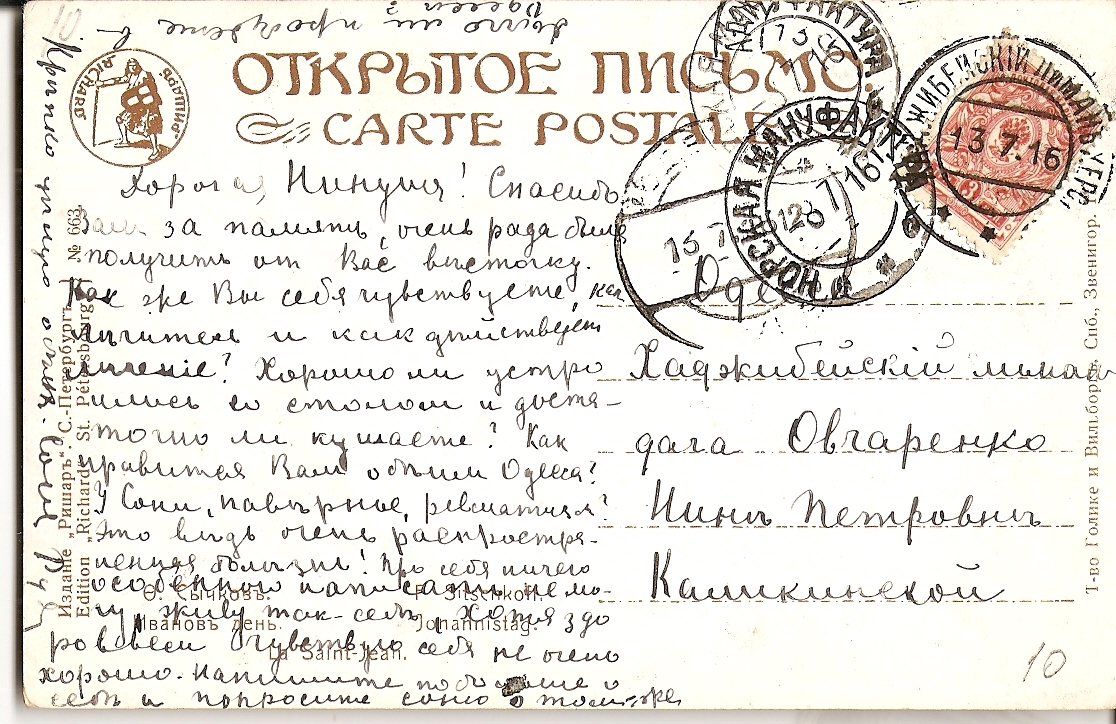 ОТКРЫТОЕ ПИСЬМО.
CARTE POSTALE
RICHARD
РИШАРЪ
Хорогая, Нинуша! Спасибо
Вамъ за память, очень рада была
получить отъ Васъ вѣсточку.
Какъ же Вы себя чувствуете, как
лѣчитесь и какъ дѣйствуетъ
лѣченіе? Хорошо ли устро
ились со столомъ и доста-
точно ли кушаете? Какъ
нравится Вамъ обѣимъ Одесса?
У Сони, навѣрное, ревматизм?
Это вѣдь очень распростра-
ненная болѣзнь! Про себя ничего
особеннаго написать не мо-
гу, живу такъ-себѣ, хотя здо
ровьемъ чувствую себя не очень
хорошо. Напишите побольше о
себѣ и попросите Соню о томъ-же
Крѣпко цѣлую
Одесса
Хаджибейскій лиман
дача Овчаренко
Нинѣ Петровнѣ
Кашкинской
Изданіе „Ришаръ“, С.-Петербургъ.
Edition „Richard“, St. Pétersbourg. № 663.
Ѳ. Сычковъ.
F. Sitschkoff.
Ивановъ день.
Johannistag.
La Saint-Jean.
Т-во Голике и Вильборгъ. Спб., Звенигор.
13.7.16
15.7
НОРСКАЯ МАНУФАКТУРА
10
10